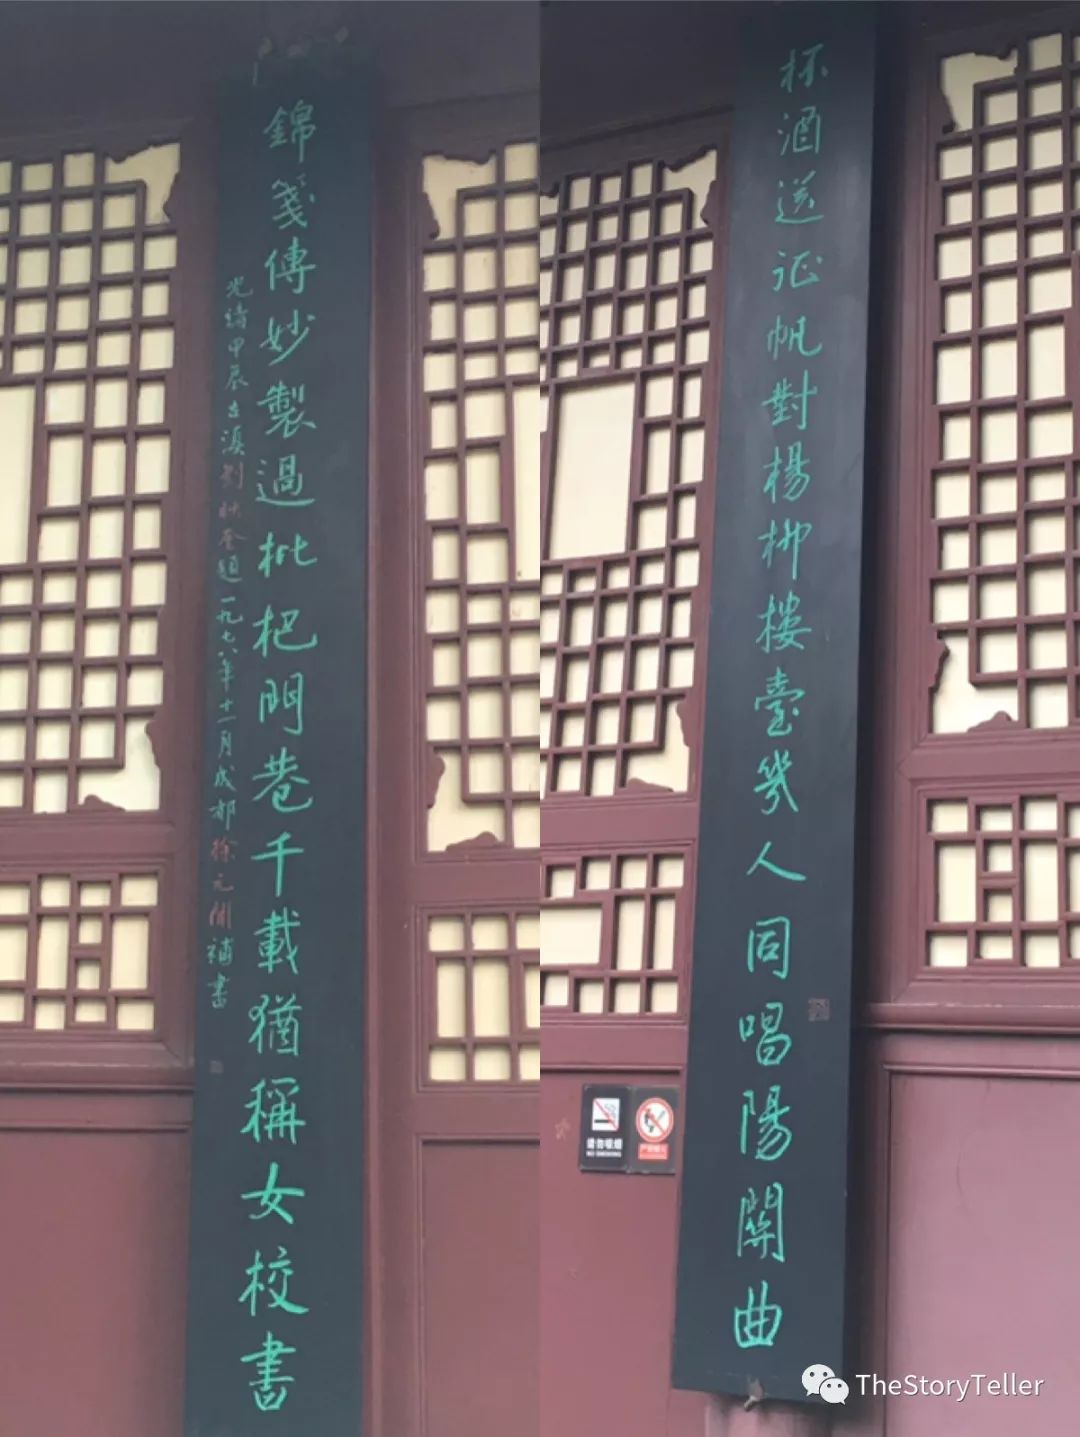 杯酒送征帆對楊柳樓臺幾人同唱陽關曲
錦箋傳妙製過枇杷門巷千載猶稱女校書
光緒甲辰古滇劉秋題一九七八年十一月成都徐元聞補書
請勿吸煙
NO SMOKING
TheStoryTeller